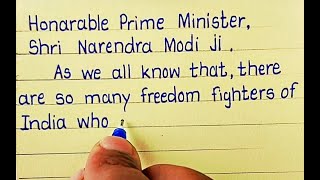 Honarable Prime Minister,
Shri Narendra Modi Ji.
As we all know that, there
are so many freedom fighters of
India who